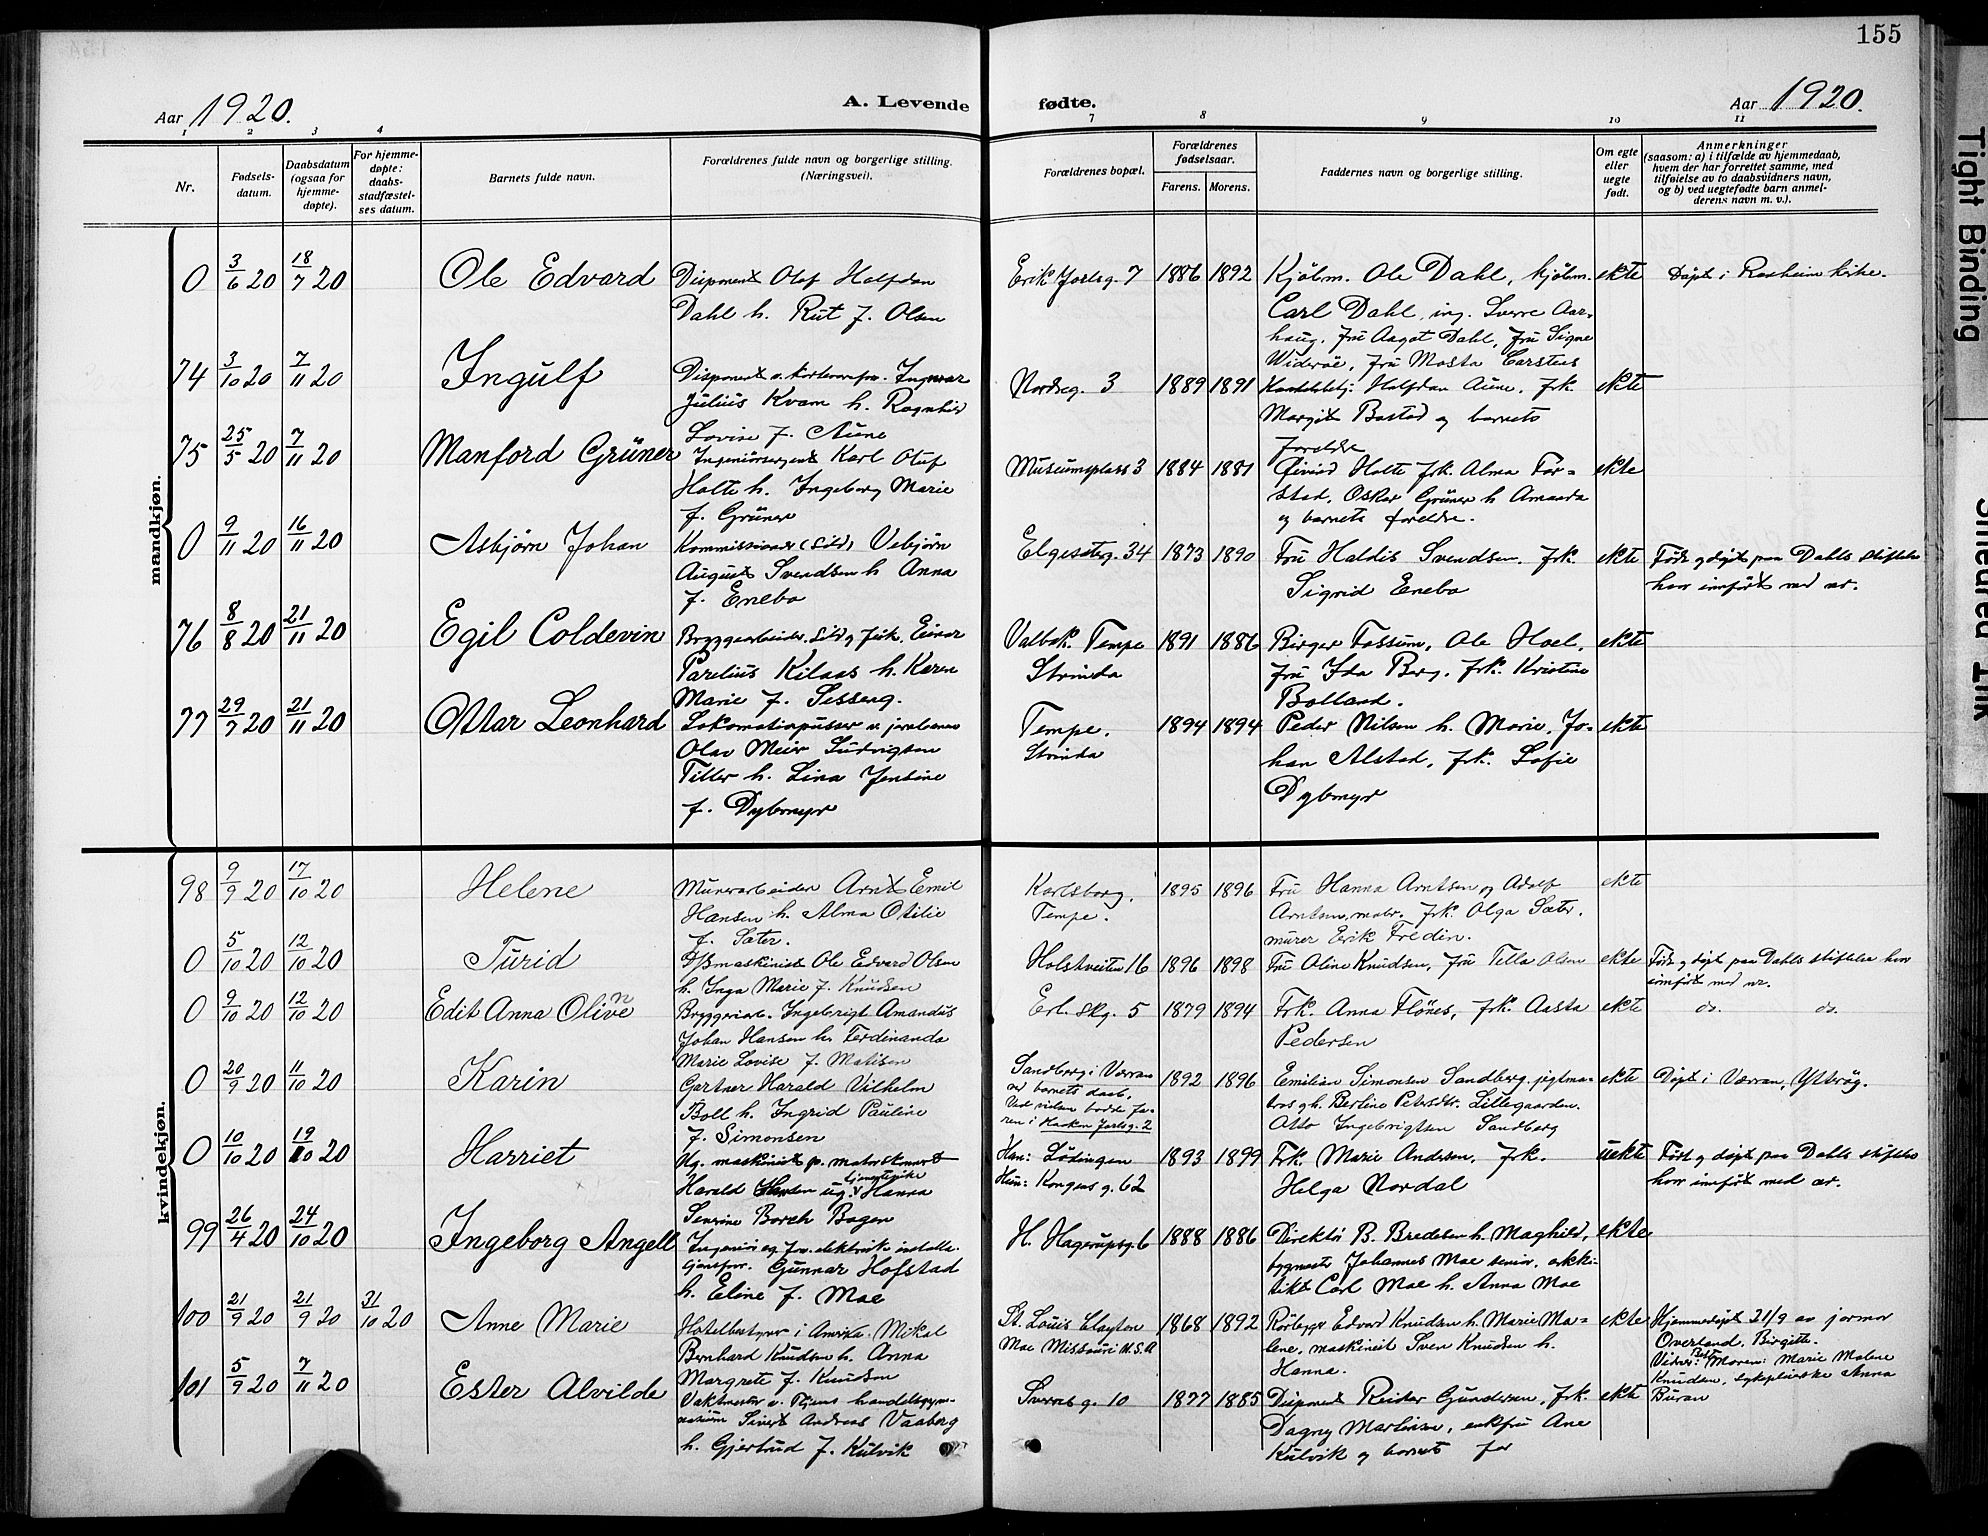 155
Aar 1920.
A. Levende fødte.
Aar 1920.
1 2 3 4 7 8 9 10 11
Nr.
Fødsels-
datum.
Daabsdatum
(ogsaa for
hjemme-
døpte).
For hjemme-
døpte:
daabs-
stadfæstel-
ses datum.
Barnets fulde navn.
Forældrenes fulde navn og borgerlige stilling.
(Næringsvei).
Forældrenes bopæl.
Forældrenes
fødselsaar.
Farens. Morens.
Faddernes navn og borgerlige stilling.
Om egte
eller
uegte
født.
Anmerkninger
(saasom: a) i tilfælde av hjemmedaab,
hvem der har forrettet samme, med
tilføielse av to daabsvidners navn,
og b) ved uegtefødte barn anmel-
derens navn m. v.).
mandkjøn.
0 3/6 20 18/7 20 Ole Edvard
Disponent Olaf Halfdan
Dahl h. Rut f. Olsen
Erik Jarlsg. 7 1886 1892
Kjøbm. Ole Dahl, kjøbm.
Carl Dahl, ing. Sverre Aar-
haug, fru Aagot Dahl, fru Signe
Widerøe, fru Mosta Carstens
ekte
Døpt i kirke.
74 3/10 20 7/11 20 Ingulf
Disponent Ingvar
Julius Kvam h. Ragnhild
Lovise f. Aune
Nordreg. 3 1889 1891
Halfdan Aune, frk.
Margit Bastad og barnets
foreldre
ekte
75 25/5 20 7/11 20 Manford Grüner
Karl Oluf
Holte h. Ingeborg Marie
f. Grüner
Museumsplass 3 1884 1881
Øivind Holte frk. Alma For-
stad, Oskar Grüner h Amanda
og barnets foreldre.
ekte
0 9/11 20 16/11 20 Asbjørn Johan
Kommissionær (Sild) Vebjørn
August Svendsen h Anna
f. Enebo
Elgesæterg. 34 1873 1890
Fru Haldis Svendsen, frk.
Sigrid Enebo
ekte
Født og døpt paa Dahls stiftelse
hvor innført med nr.
76 8/8 20 21/11 20 Egil Coldevin
Bryggearbeider, Sild og Fisk, Einar
Parelius Kilaas h. Karen
Marie f. Sesseng.
Valbek. Tempe
Strinda
1891 1886
Birger Fossum, Ole Hoel,
fru Ida Berg, frk. Kristine
Bolland.
ekte
77 29/7 20 21/11 20 Ottar Leonhard
Lokomotivpusser v. jernbanen
Olav Meier Ludvigsen
Tiller h. Lina Jensine
f. Dybmyr
Tempe.
Strinda
1894 1894
Peder Nilsen h. Marie, Jo-
han Alstad, frk. Sofie
Dybmyr
ekte
kvindekjøn.
98 9/9 20 17/10 20 Helene
Murerarbeider Arnt Emil
Hansen h. Alma Otilie
f. Sæter.
Karlsborg.
Tempe.
1895 1896
Fru Hanna Arntsen og Adolf
Arntsen, maler. frk. Olga Sæter.
murer Erik Fredin.
ekte
0 5/10 20 12/10 20 Turid
D/Smaskinist Ole Edvard Olsen
h. Inga Marie f. Knudsen
Holstveiten 16 1896 1898
Fru Oline Knudsen, fru Tella Olsen
ekte
Født og døpt paa Dahls stiftelse hvor
innført med nr.
0 9/10 20 12/10 20 Edit Anna Oline
Bryggeriarb. Ingebrigt Amandus
Johan Hansen h. Ferdinanda
Marie Lovise f. Matisen
Erl. Skg. 5 1879 1894
Frk. Anna Flönes, frk. Aasta
Pedersen
ekte
do. do.
0 20/9 20 11/10 20 Karin
Gartner Harald Vilhelm
Boll h. Ingrid Pauline
f. Simonsen
Sandberg i Værran
ved barnets daab.
Ved siden bodde fa-
ren i Haakon Jarlsg. 2
1892 1896
Emilian Simonsen Sandberg. jegtma-
tros og h. Berline Petersdtr. Lillegaarden.
Otto Ingebrigtsen Sandberg
ekte
Døpt i Værran, Ytterøy.
0 10/10 20 19/10 20 Harriet
Ug. maskinist pr. motorskonnert
Harald ug. tjenestepike Hanna
Senrine Borch Bogen
Han: Lødingen
Hun: Kongens g. 62
1893 1899
Frk. Marie Andersen, frk.
Helga Nordal
uekte
Født og døpt paa Dahls stiftelse
hvor innført med nr.
99 26/4 20 24/10 20 Ingeborg Angell
Ingeniør og elektrisk installa-
Gunnar Hofstad
h. Eline f. Moe
H. Hagerupsg. 6 1888 1886
Direktør B. Bredesen h. Maghild,
bygmester Johannes Moe senior, arki-
tekt Carl Moe h. Anna Moe
ekte
100 21/9 20 21/9 20 31/10 20 Anne Marie
Hotelbestyrer i Amerika. Mikal
Bernhard Knudsen h. Anna
Margrete f. Knudsen
St. Louis Clayton
Mac Missouri U.S.A
1868 1892
Rørlegger Edvard Knudsen h. Marie Ma-
lene, maskinist Sven Knudsen h.
Hanne.
ekte
Hjemmedøpt 21/9 av jormor
Overland, Birgitte.
Vidner: Moren: Marie Malene
Knudsen, sykepleierske Anna
Buran
101 5/9 20 7/11 20 Ester Alvilde
Vaktmester v. Thjems handelsgym-
nasium Sivert Andreas Vaaberg
h. Gjertrud f. Kulvik
Sverres g. 10 1877 1885
Disponent Reidar Gundersen, frk.
Dagny Martinsen, enkefru Ane
Kulvik og barnets far
ekte
Tight Binding
Smeared Ink